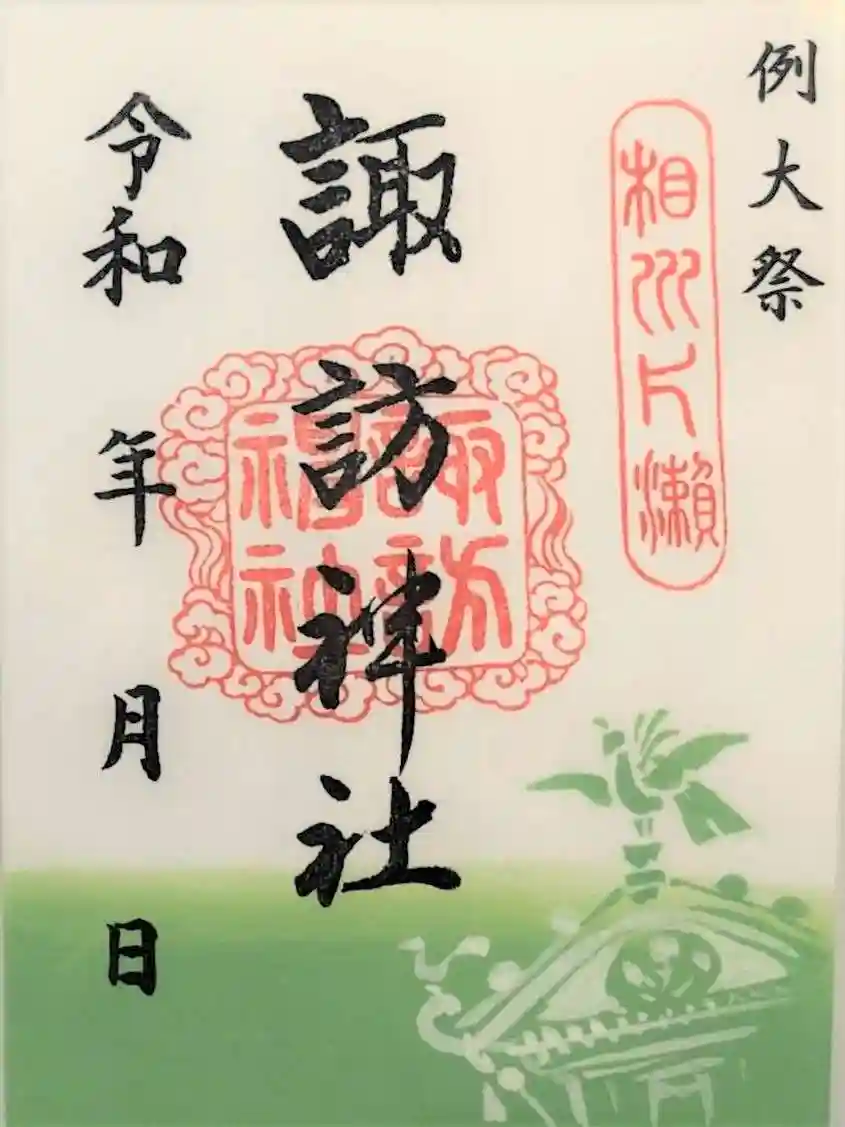 例大祭
相州片瀬
諏訪神社
諏訪
神社
令和 年 月 日